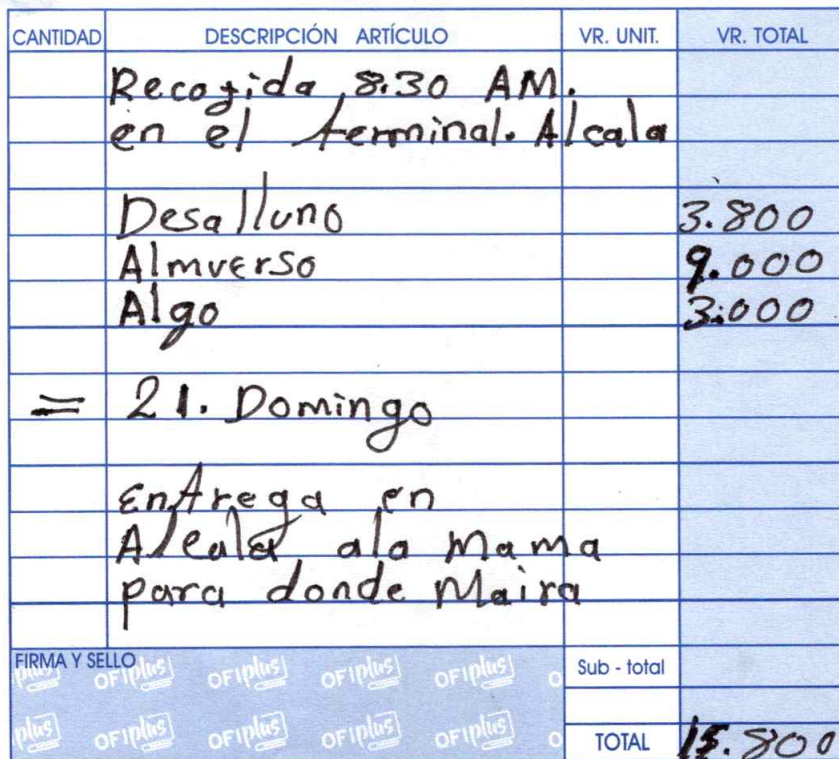 CANTIDAD DESCRIPCIÓN ARTÍCULO VR. UNIT. VR. TOTAL
Recogida 8.30 AM.
en el terminal. Alcala
Desalluno 3.800
Almverso 9.000
Algo 3.000
= 21. Domingo
Entrega en
Alcala ala Mama
para donde Maira
FIRMA Y SELLO Sub - total
plus OFIplus OFIplus OFIplus OFIplus O
plus OFIplus OFIplus OFIplus OFIplus O
TOTAL 15.800